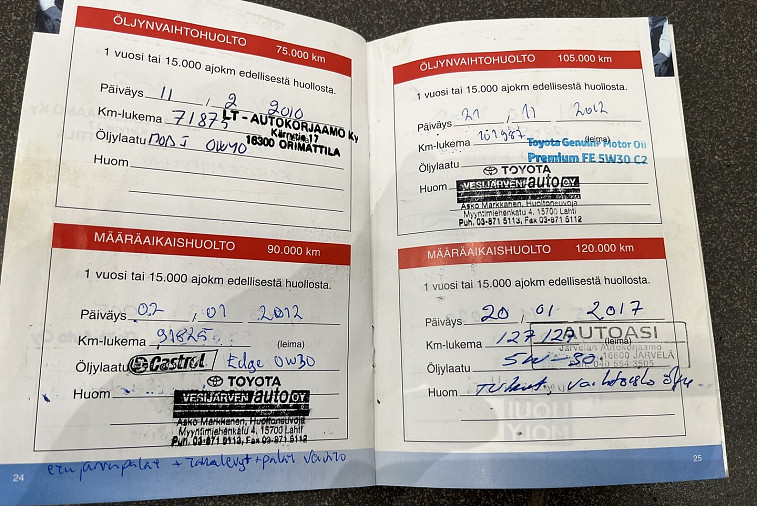 ÖLJYNVAIHTOHUOLTO 75.000 km
1 vuosi tai 15.000 ajokm edellisestä huollosta.
Päiväys 11 , 2 2010
Km-lukema 71875
LT - AUTOKORJAAMO Ky
Kärrytie 17
16300 ORIMATTILA
Öljylaatu MOBI 0W40
Huom
MÄÄRÄAIKAISHUOLTO 90.000 km
1 vuosi tai 15.000 ajokm edellisestä huollosta.
Päiväys 02 , 01 2012
Km-lukema 91825 (leima)
Öljylaatu Castrol Edge 0W30
Huom
TOYOTA
VESIJÄRVEN auto OY
Asko Markkanen, Huoltoneuvoja
Myyntimiehenkatu 4, 15700 Lahti
Puh. 03-871 5113, Fax 03-871 5112
etujarrupalat + takalevyt + palat vaihto
24
ÖLJYNVAIHTOHUOLTO 105.000 km
1 vuosi tai 15.000 ajokm edellisestä huollosta.
Päiväys 21 , 11 2012
Km-lukema 101987 (leima)
Toyota Genuine Motor Oil
Premium FE 5W30 C2
Öljylaatu
Huom
TOYOTA
VESIJÄRVEN auto OY
Asko Markkanen, Huoltoneuvoja
Myyntimiehenkatu 4, 15700 Lahti
Puh. 03-871 5113, Fax 03-871 5112
MÄÄRÄAIKAISHUOLTO 120.000 km
1 vuosi tai 15.000 ajokm edellisestä huollosta.
Päiväys 20 , 01 2017
Km-lukema 127127 (leima)
AUTOASI
Järvelän Autokorjaamo
16600 JÄRVELÄ
Puh. 040 554 3505
Öljylaatu 5W-30
Huom
25